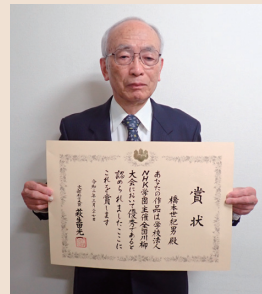 賞状
橋本世紀男殿
あなたの作品は学校法人
NHK学園主催全国川柳
大会において優秀であると
認められましたここに
これを賞します
文部科学大臣 萩生田光一